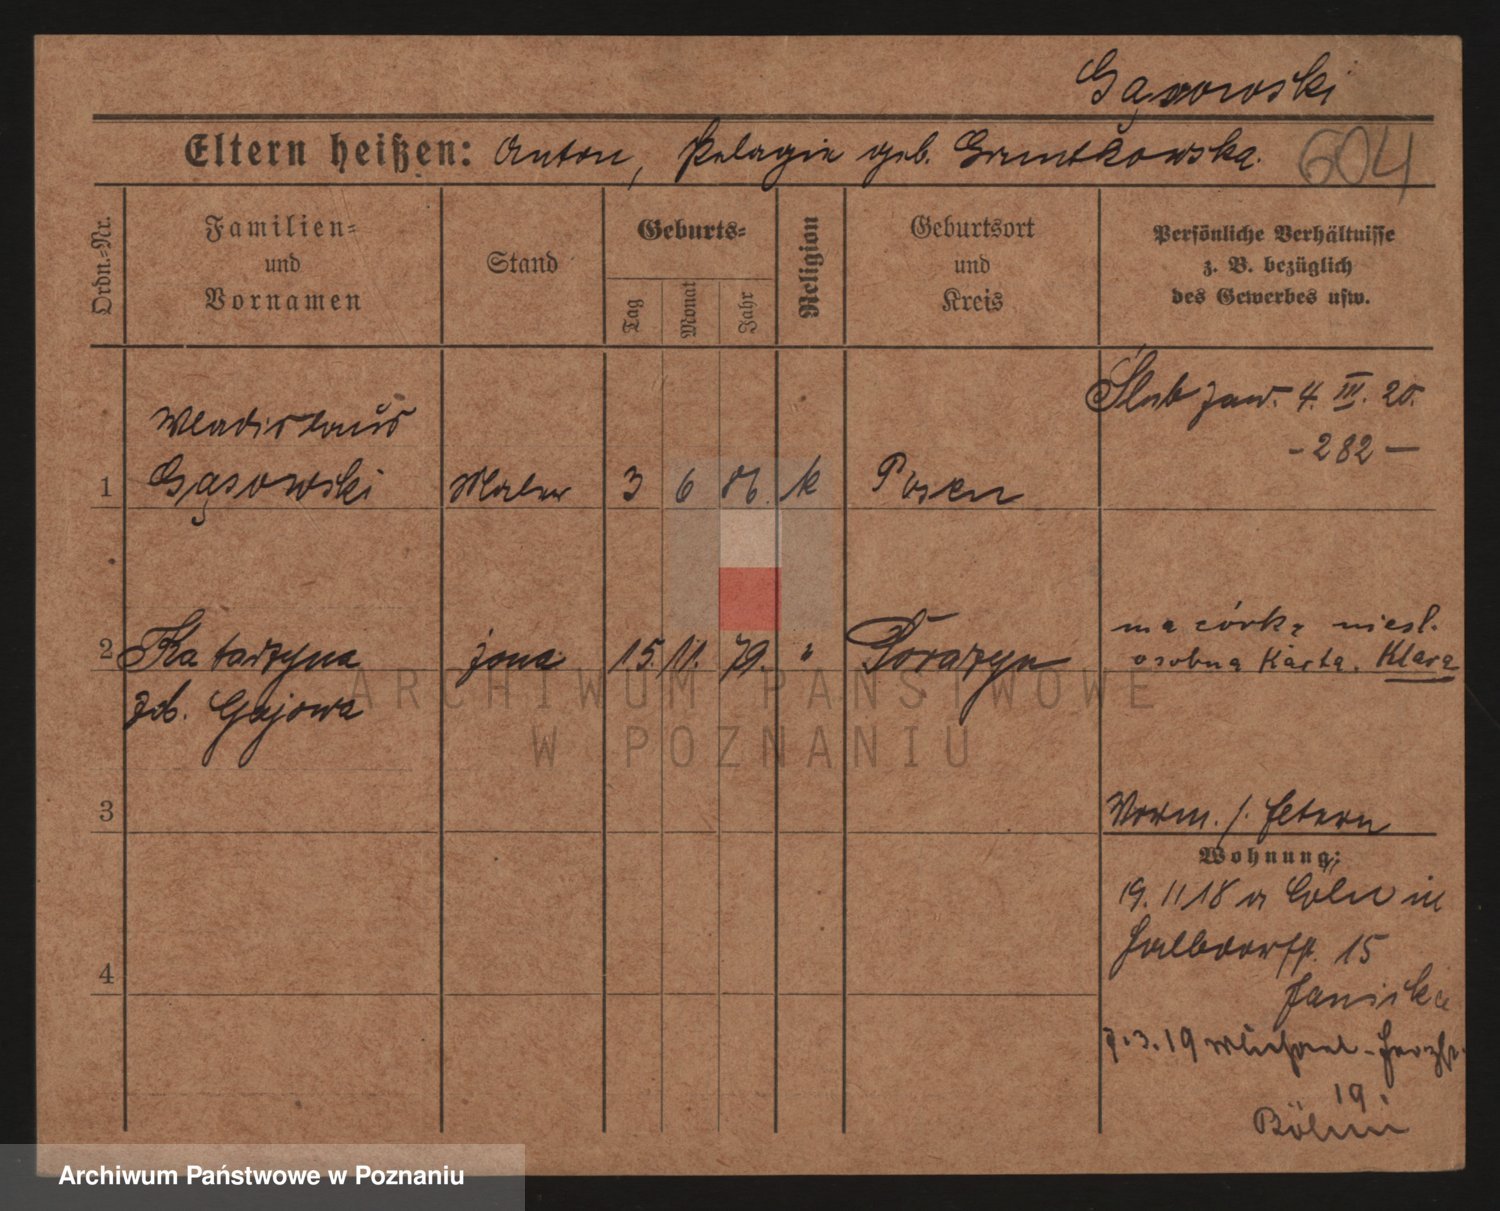 Gąsowski
Eltern heißen: Anton, Pelagie geb. Gruntkowska.
604
Ordn.-Nr.
Familien- und Vornamen
Stand
Geburts-
Tag
Monat
Jahr
Religion
Geburtsort und Kreis
Persönliche Verhältnisse
z. B. bezüglich
des Gewerbes usw.
Ślub zaw. 4. III. 20.
- 282 -
Wladislaus
1 Gąsowski Maler 3 6 86. k Posen
2 Katarzyna żona 15. 11. 79. "
zd. Gajowa
ma córkę niesl.
osobna Karta. Klara
3
Vorm. s. Eltern
Wohnung:
19. 11 18 a Cöln
Halbdorfstr. 15
4
7.3.19
19.
Böhm
ARCHIWUM PAŃSTWOWE
W POZNANIU
Archiwum Państwowe w Poznaniu